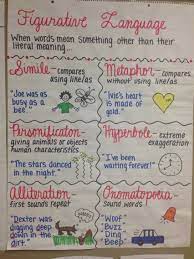 Figurative Language
When words mean something other than their
literal meaning...
Simile - compares
using like/as
"Joe was as
busy as a
bee."
Metaphor - compares
without using like/as
"Vic's heart
is made of
gold."
Personification -
giving animals or objects
human characteristics
"The stars danced
in the night."
Hyperbole - extreme
exaggeration
"I've been
waiting forever!"
Alliteration -
first sounds repeat
"Dexter was
digging deep
down in the
dirt."
Onomatopoeia -
sound words
"Woof"
"Buzz"
"Ding"
"Beep"